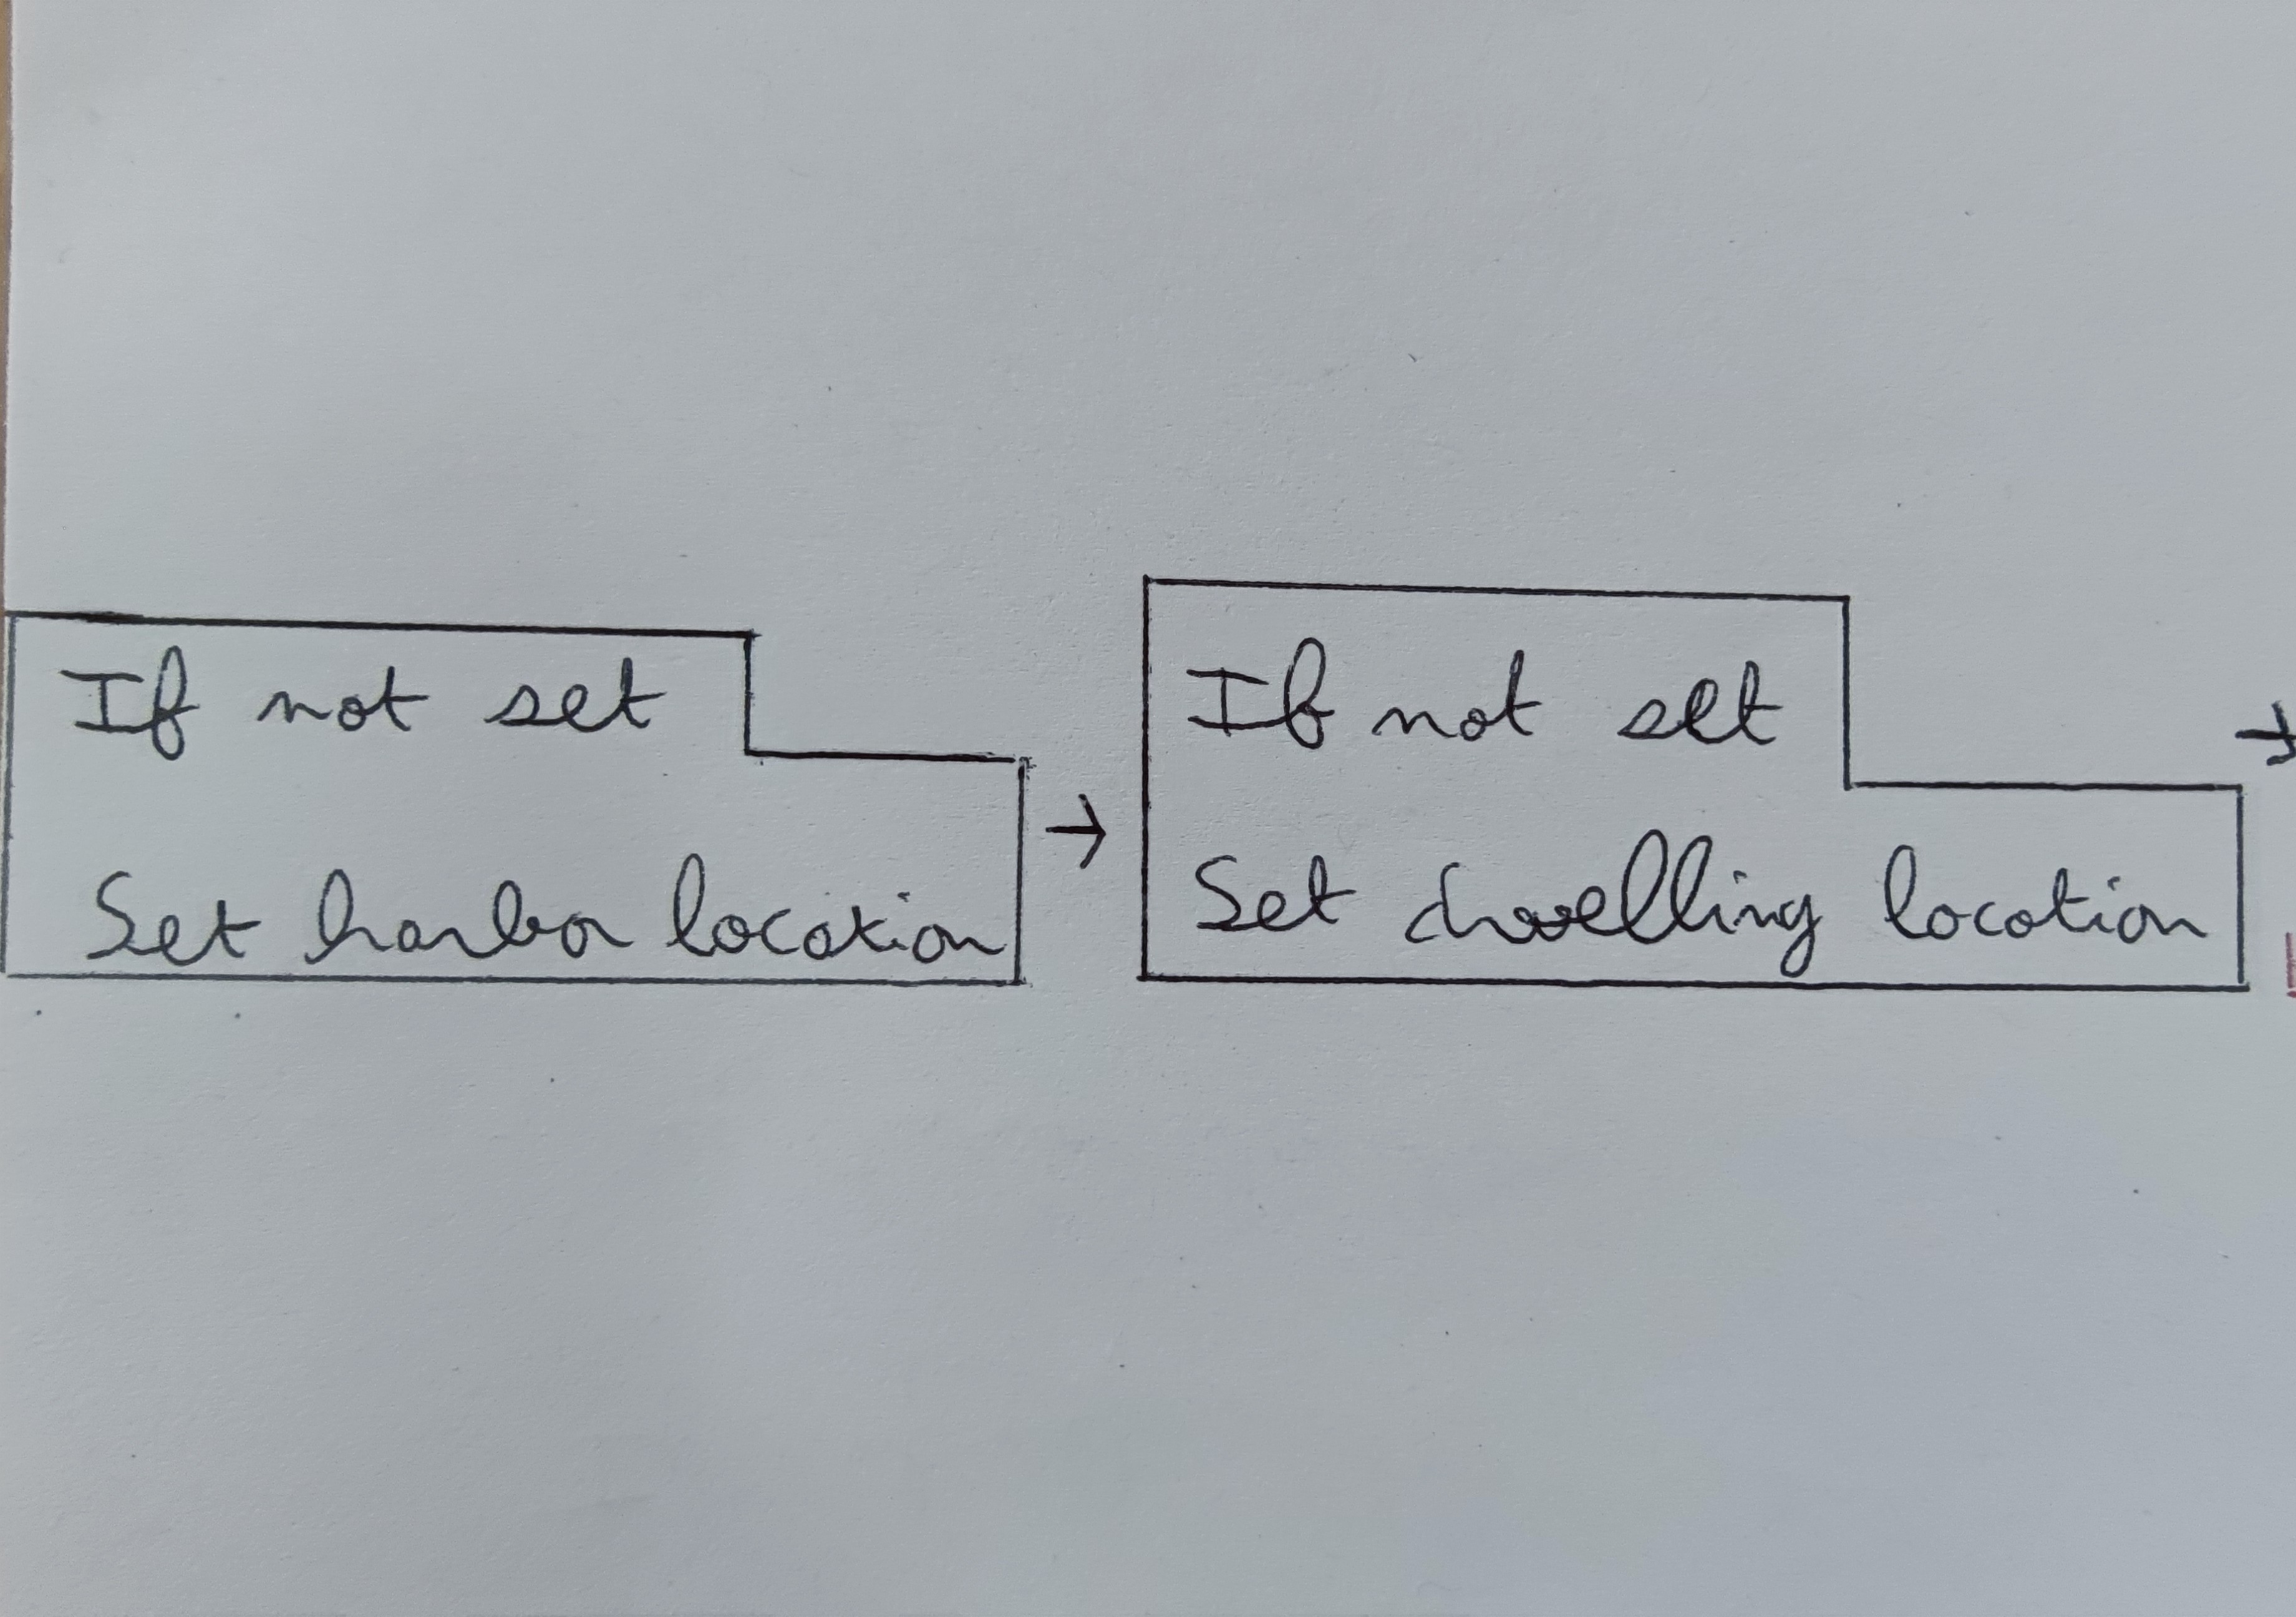 If not set
Set harbor location
→
If not set
Set dwelling location
→